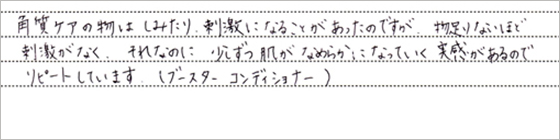 角質ケアの物は しみたり、刺激になることがあったのですが、物足りないほど
刺激がなく、それなのに 少しずつ肌がなめらかになっていく実感があるので
リピートしています。（ブースター コンディショナー）